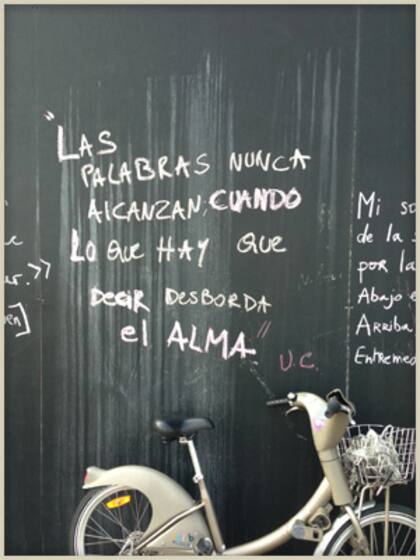 "LAS
PALABRAS NUNCA
ALCANZAN, CUANDO
LO QUE HAY QUE
DECIR DESBORDA
el ALMA"
U.C.
ar.>>
en]
Mi so
de la s
por la
Abajo e
Arriba
Entremed